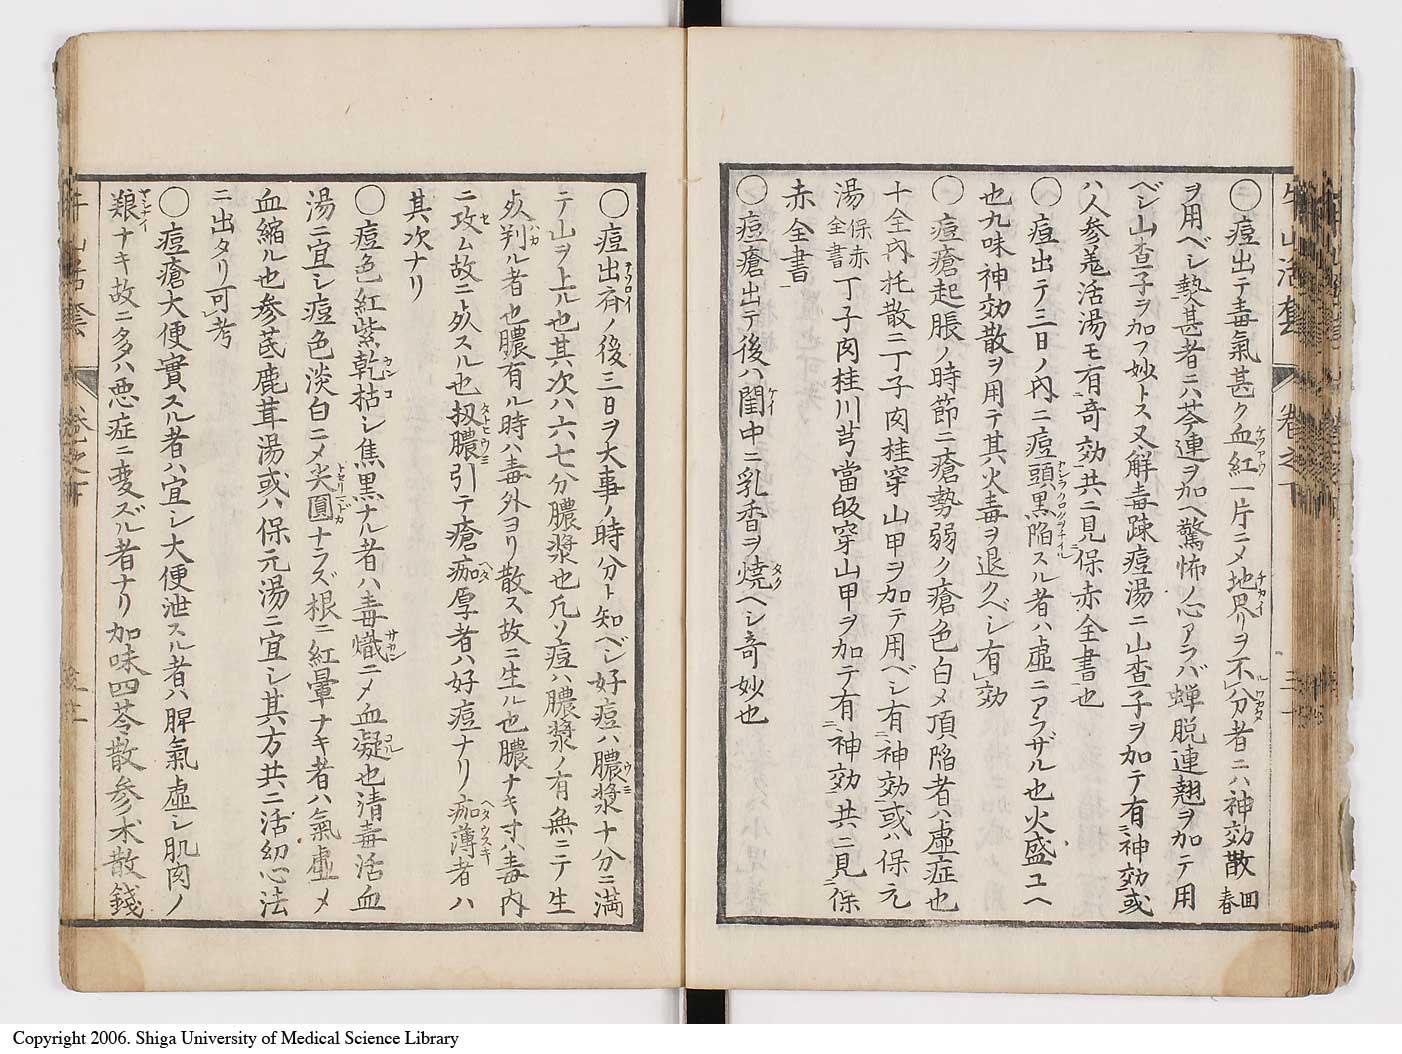 牛山活套 卷之下
〇痘出テ毒氣甚ク血紅一片ニメ地界リヲ不分者ニハ神効散回春
ヲ用ベシ熱甚者ニハ芩連ヲ加ヘ驚怖ノ心アラバ蝉脱連翹ヲ加テ用
ベシ山査子ヲ加フ妙トス又解毒踈痘湯ニ山査子ヲ加テ有神効或
ハ人参羗活湯モ有奇効共ニ見保赤全書也
〇痘出テ三日ノ内ニ痘頭黒陥スル者ハ虚ニアラザル也火盛ユヘ
也九味神効散ヲ用テ其火毒ヲ退クベシ有効
〇痘瘡起脹ノ時節ニ瘡勢弱ク瘡色白メ頂陥者ハ虚症也
十全内托散ニ丁子肉桂穿山甲ヲ加テ用ベシ有神効或ハ保元
湯保赤全書丁子肉桂川芎當皈穿山甲ヲ加テ有神効共ニ見保
赤全書
〇痘瘡出テ後ハ閨中ニ乳香ヲ焼ヘシ奇妙也
〇痘出齊ノ後三日ヲ大事ノ時分ト知ベシ好痘ハ膿漿十分ニ満
テ山ヲ上ル也其次ハ六七分膿漿也凡ソ痘ハ膿漿ノ有無ニテ生
死判ル者也膿有ル時ハ毒外ヨリ散ス故ニ生ル也膿ナキ寸ハ毒内
ニ攻ム故ニト死スル也扨膿引テ瘡痂厚者ハ好痘ナリ痂薄者ハ
其次ナリ
〇痘色紅紫乾枯シ焦黒ナル者ハ毒熾ニメ血凝也清毒活血
湯ニ宜シ痘色淡白ニメ尖圓ナラズ根ニ紅暈ナキ者ハ氣虚メ
血縮ル也参芪鹿茸湯或ハ保元湯ニ宜シ其方共ニ活幼心法
ニ出タリ可考
〇痘瘡大便實スル者ハ宜シ大便泄スル者ハ脾氣虚シ肌肉ノ
艱ナキ故ニ多ハ悪症ニ変ズル者ナリ加味四苓散参朮散錢
Copyright 2006. Shiga University of Medical Science Library